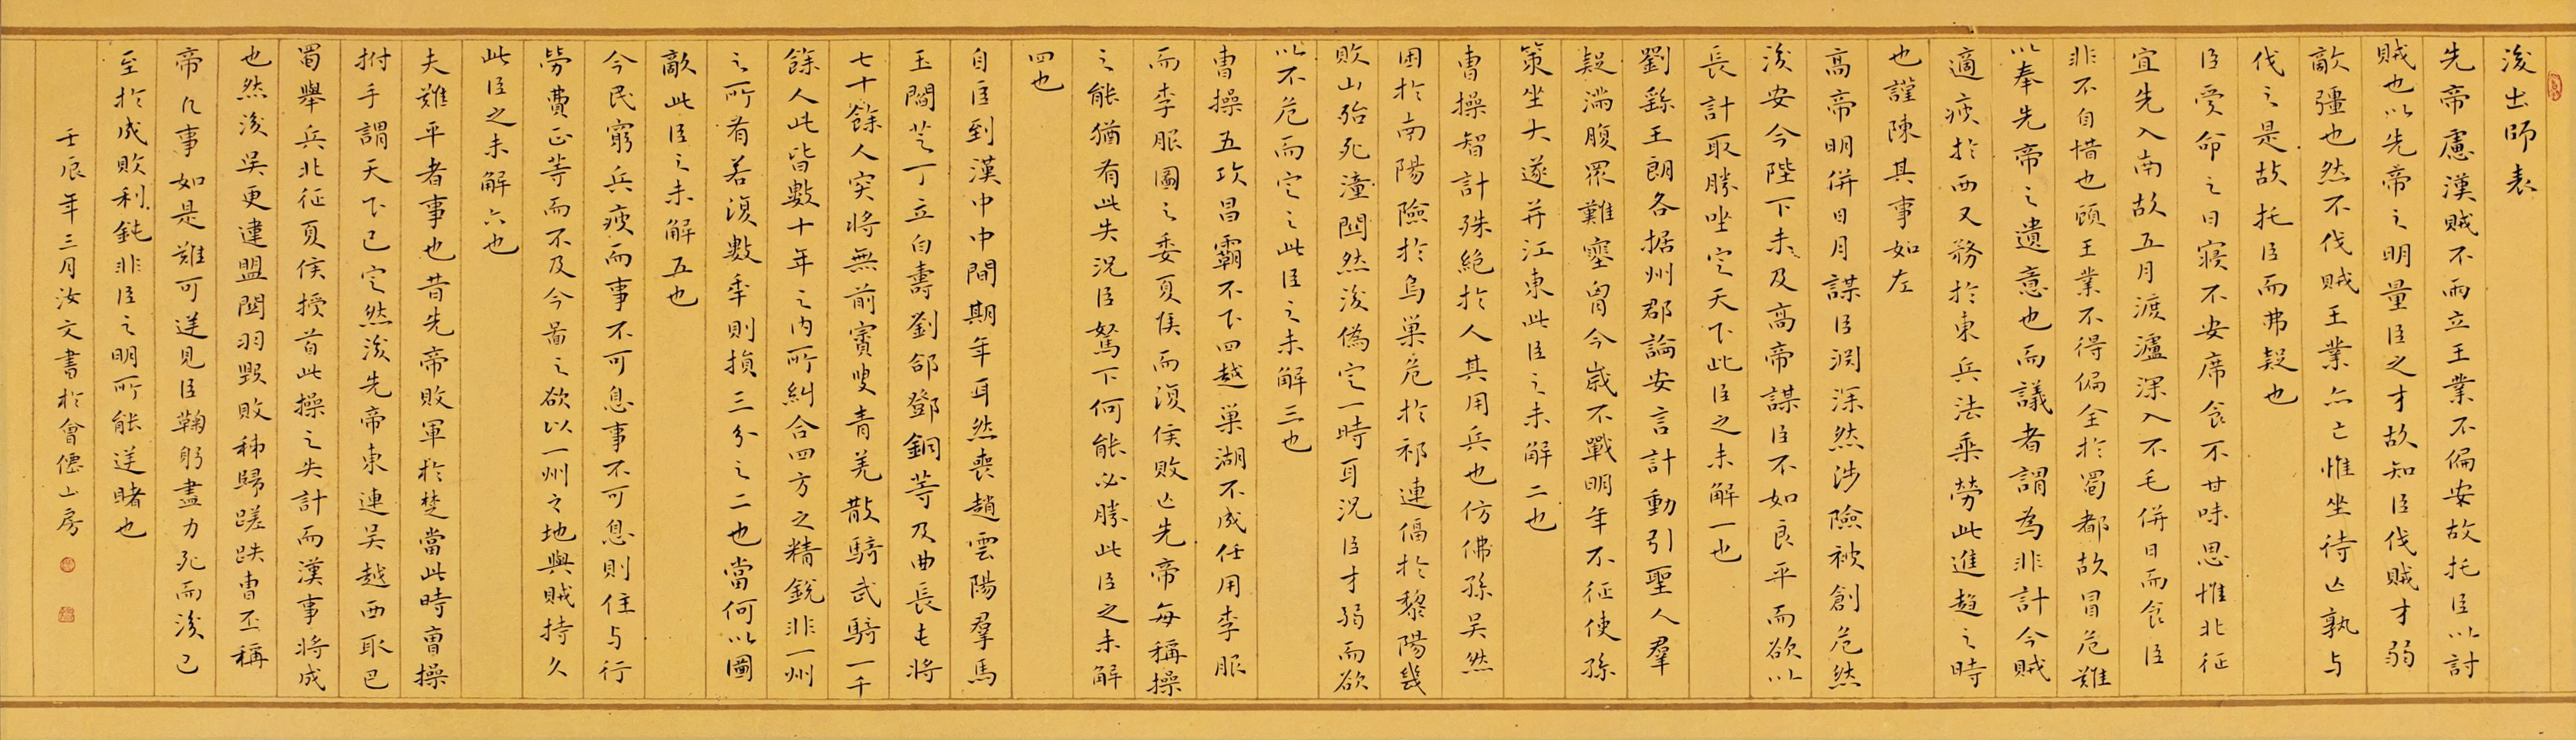 後出師表
先帝慮漢賊不兩立王業不偏安故托臣以討
賊也以先帝之明量臣之才故知臣伐賊才弱
敵彊也然不伐賊王業亦亡惟坐待亡孰与
伐之是故托臣而弗疑也
臣受命之日寢不安席食不甘味思惟北征
宜先入南故五月渡瀘深入不毛併日而食臣
非不自惜也顧王業不得偏全於蜀都故冒危難
以奉先帝之遺意也而議者謂為非計今賊
適疲於西又務於東兵法乘勞此進趨之時
也謹陳其事如左
高帝明併日月謀臣淵深然涉險被創危然
後安今陛下未及高帝謀臣不如良平而欲以
長計取勝坐定天下此臣之未解一也
劉繇王朗各据州郡論安言計動引聖人羣
疑滿腹眾難塞胷今歲不戰明年不征使孫
策坐大遂并江東此臣之未解二也
曹操智計殊絕於人其用兵也仿佛孫吳然
困於南陽險於烏巢危於祁連偪於黎陽幾
敗山殆死潼關然後偽定一時耳況臣才弱而欲
以不危而定之此臣之未解三也
曹操五攻昌霸不下四越巢湖不成任用李服
而李服圖之委夏侯而復侯敗亡先帝每稱操
之能猶有此失況臣駑下何能必勝此臣之未解
四也
自臣到漢中中間期年耳然喪趙雲陽羣馬
玉閻芝丁立白壽劉郃鄧銅等及曲長屯將
七十餘人突將無前賨叟青羌散騎武騎一千
餘人此皆數十年之內所糾合四方之精銳非一州
之所有若復數年則損三分之二也當何以圖
敵此臣之未解五也
今民窮兵疲而事不可息事不可息則住与行
勞費正等而不及今圖之欲以一州之地與賊持久
此臣之未解六也
夫難平者事也昔先帝敗軍於楚當此時曹操
拊手謂天下已定然後先帝東連吳越西取巴
蜀舉兵北征夏侯授首此操之失計而漢事將成
也然後吳更違盟關羽毀敗秭歸蹉跌曹丕稱
帝凡事如是難可逆見臣鞠躬盡力死而後已
至於成敗利鈍非臣之明所能逆睹也
壬辰年三月汝文書於會僊山房